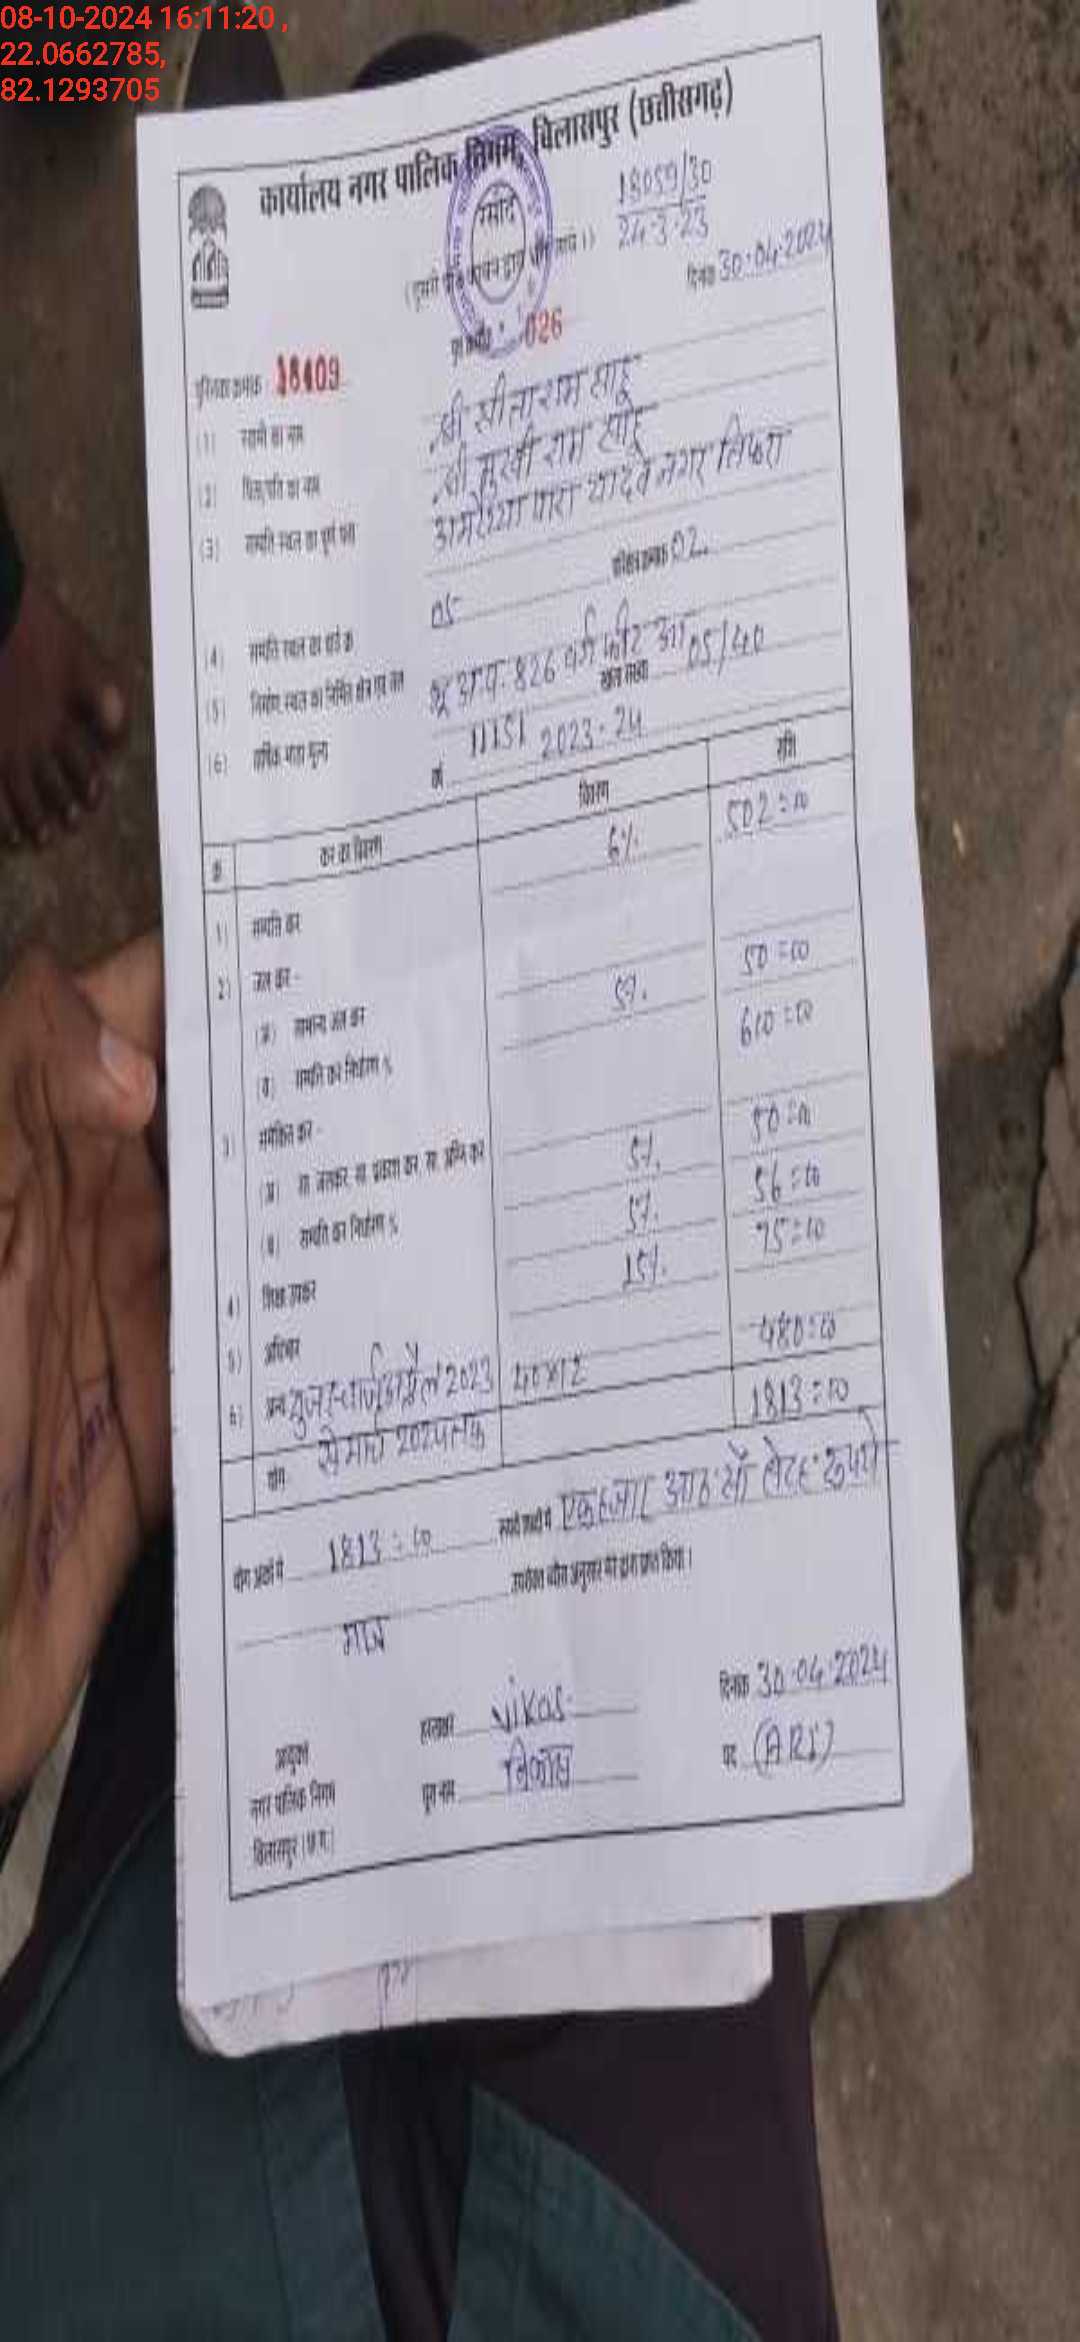 08-10-2024 16:11:20 ,
22.0662785,
82.1293705
कार्यालय नगर पालिक निगम, बिलासपुर (छत्तीसगढ़)
रसीद
18059/30
24-3-23
दिनांक 30-04-2024
पुस्तिका क्रमांक 18409
026
(1) स्वामी का नाम श्री सीताराम साहू
(2) पिता/पति का नाम श्री मुखी राम साहू
(3) सम्पत्ति स्थल का पूर्ण पता पारा यादव नगर तिफरा
(4) सम्पत्ति स्थल का वार्ड क्र 05 02
(5) निर्माण स्थल का निर्मित क्षेत्र एवं 826 वर्ग फीट
(6) वार्षिक भाड़ा मूल्य 11151 05/40
वर्ष 2023-24
क्र कर का विवरण विवरण राशि
1) सम्पत्ति कर 6% 502=00
2) जल कर -
(अ) सामान्य जल कर
(ब) सम्पत्ति कर निर्धारण % 5% 50=00
3) समेकित कर - 600=00
(अ) सा जलकर, सा प्रकाश कर, सा अग्नि कर
(ब) सम्पत्ति कर निर्धारण % 5% 50=00
4) शिक्षा उपकर 5% 56=00
5) अधिभार 15% 75=00
6) अन्य यूजर चार्ज अप्रैल 2023 40×12 480=00
से मार्च 2024 तक
योग 1813=00
योग अंकों में 1813=00 रूपये शब्दों में एक हजार आठ सौ तेरह रूपये
मात्र उपरोक्त योग अनुसार मेरे द्वारा प्राप्त किया।
आयुक्त
नगर पालिक निगम
बिलासपुर (छ.ग.)
हस्ताक्षर Vikas दिनांक 30-04-2024
पूरा नाम विकास पद (ARI)